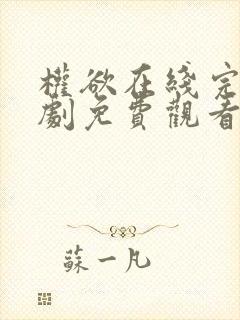 權欲在綫完
劇免費觀看
蘇一凡